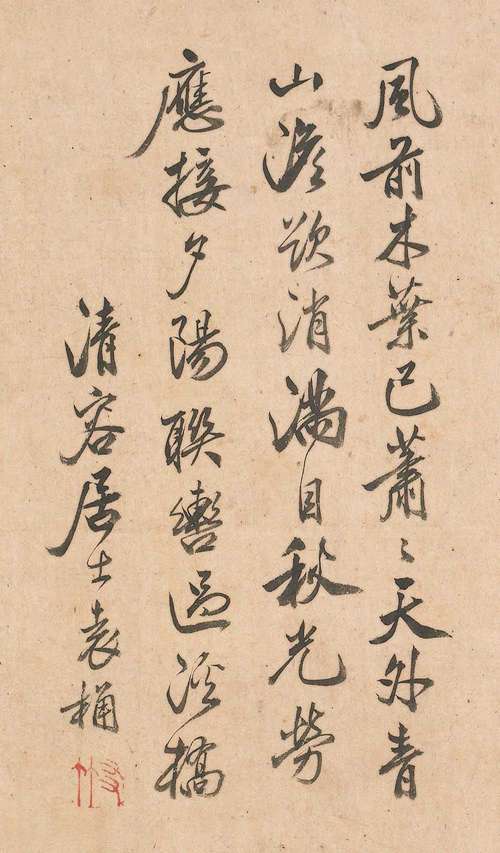 風前木葉已蕭〻天外青
山澹欲消滿目秋光勞
應接夕陽聯轡過溪橋
清容居士袁桷